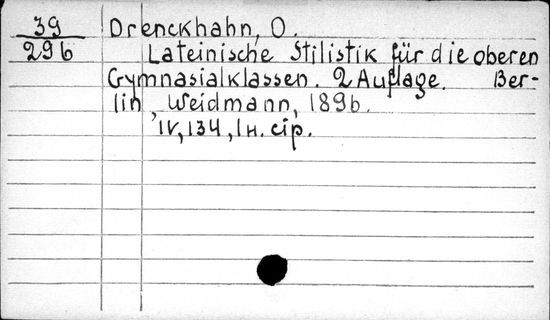 39 Drenckhahn, O.
296 Lateinische Stilistik für die oberen
Gymnasialklassen. 2 Auflage. Ber-
lin, Weidmann, 1896.
IV, 134, 1 н. cip.